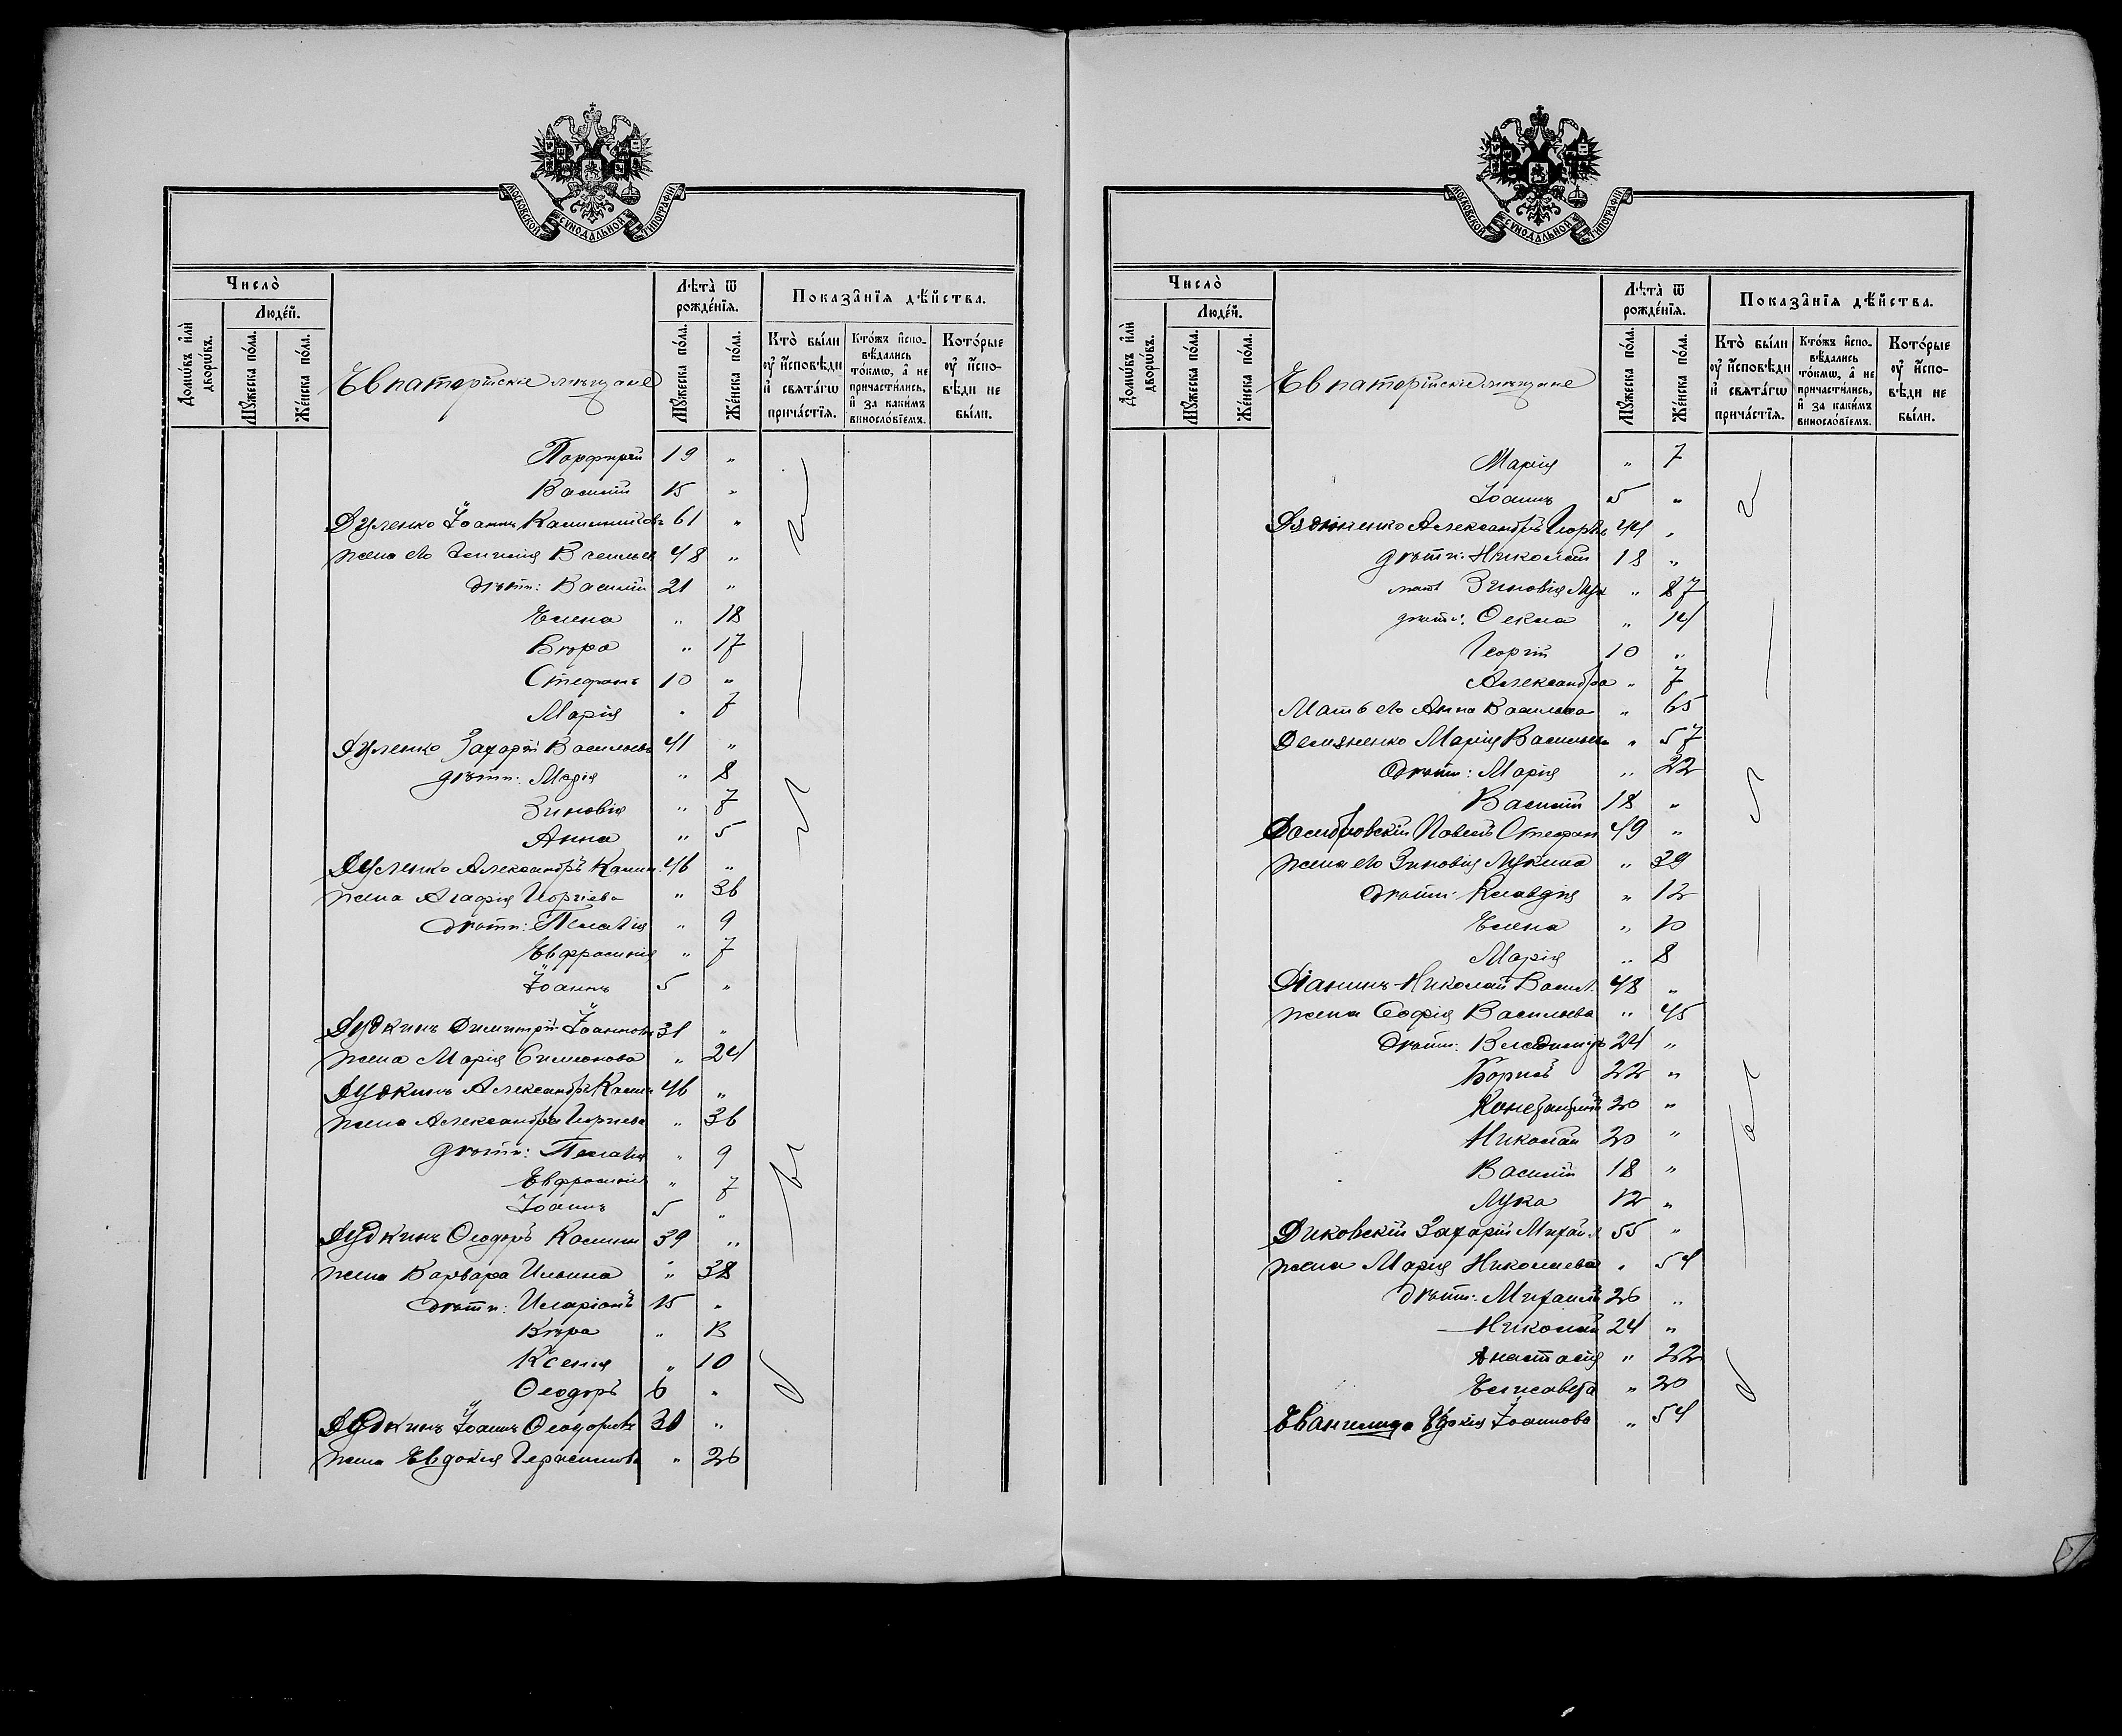 МОСКОВСКОЙ СѴНОДАЛЬНОЙ ТИПОГРАФІИ
Число̀
Людей.
Домѡвъ и҆лѝ дворѡвъ.
Мꙋ́жеска по́ла.
Же́нска по́ла.
Евпаторійскіе мѣщане
Лѣта̀ ѿ рожде́нїѧ.
Мꙋ́жеска по́ла.
Же́нска по́ла.
Показа̑нїѧ дѣ́йства.
Кто̀ бы́ли ᲂу҆ и҆сповѣди и҆ свѧта́гѡ прича́стїѧ.
Кто́жъ и҆спо-вѣдались то́кмѡ, а҆ не причасти́лись, и҆ за каки́мъ винословїемъ.
Кото́рые ᲂу҆ и҆спо-вѣди не бы́ли.
Порфирій 19 "
Василій 15 "
Дуленко Іоаннъ Каллиниковъ 61 "
жена его Василь 48 "
дѣти: Василій 21 "
Елена " 18
Вѣра " 17
Стефанъ 10 "
Марія " 7
Дуленко Захарій Васильевъ 41 "
дѣти: Марія " 8
Зиновія " 7
Анна " 5
Дуленко Александръ Калин. 46 "
жена Агафія Георгіева " 36
дѣти: Пелагія " 9
Евфросинія " 7
Іоаннъ 5 "
Дудкинъ Димитрій Іоанновъ 31 "
жена Марія Симеонова " 24
Дудкинъ Александръ Калин 46 "
жена Александра Георгіева " 36
дѣти: Пелагія " 9
Евфросинія " 7
Іоаннъ 5 "
Дудкинъ Ѳеодоръ Калини 39 "
жена Варвара Ильина " 38
дѣти: Иларіонъ 15 "
Вѣра " 13
Ксенія " 10
Ѳеодоръ 6 "
Дудкинъ Іоаннъ Ѳеодоровъ 31 "
жена Евдокія Герасимова " 26
МОСКОВСКОЙ СѴНОДАЛЬНОЙ ТИПОГРАФІИ
Число̀
Людей.
Домѡвъ и҆лѝ дворѡвъ.
Мꙋ́жеска по́ла.
Же́нска по́ла.
Евпаторійскіе мѣщане
Лѣта̀ ѿ рожде́нїѧ.
Мꙋ́жеска по́ла.
Же́нска по́ла.
Показа̑нїѧ дѣ́йства.
Кто̀ бы́ли ᲂу҆ и҆сповѣди и҆ свѧта́гѡ прича́стїѧ.
Кто́жъ и҆спо-вѣдались то́кмѡ, а҆ не причасти́лись, и҆ за каки́мъ винословїемъ.
Кото́рые ᲂу҆ и҆спо-вѣди не бы́ли.
Марія " 7
Іоаннъ 5 "
Александръ Георг 44 "
дѣти: Николай 18 "
мать Зиновія Лук " 87
дѣти: Ѳекла " 14
Георгій 10 "
Александра " 7
Мать его Анна Васильева " 65
Демяненко Марія Васильева " 57
дѣти: Марія " 22
Василій 18 "
Домбровскій Павелъ Стефан 49 "
жена его Зиновія Лукина " 39
дѣти: Клавдія " 12
Елена " 10
Марія " 8
Діанинъ Николай Васил. 48 "
жена Софія Васильева " 45
дѣти: Владиміръ 24 "
Борисъ 22 "
Константинъ 20 "
Николай 20 "
Василій 18 "
Лука 12 "
Диковскій Захарій Михайл 55 "
жена Марія Николаева " 54
дѣти: Михаилъ 26 "
Николай 24 "
Анастасія " 22
Елисавета " 20
Евангелида Евдокія Іоаннова " 54